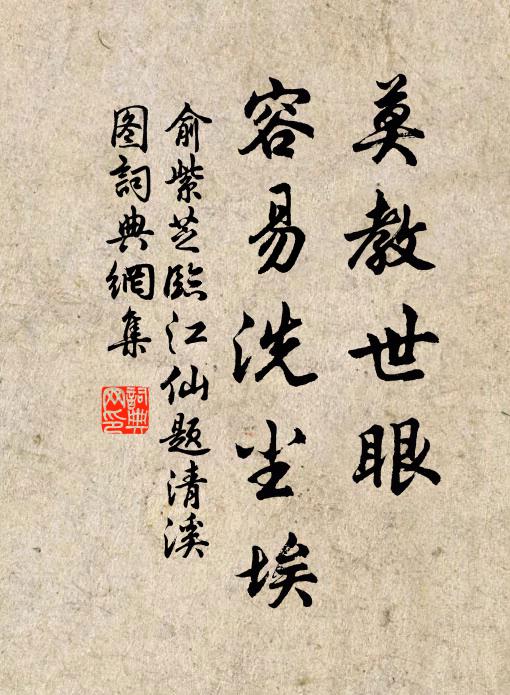 莫教世眼
容易洗尘埃
俞紫芝臨江仙题清溪
图詞典網集
詞典網印